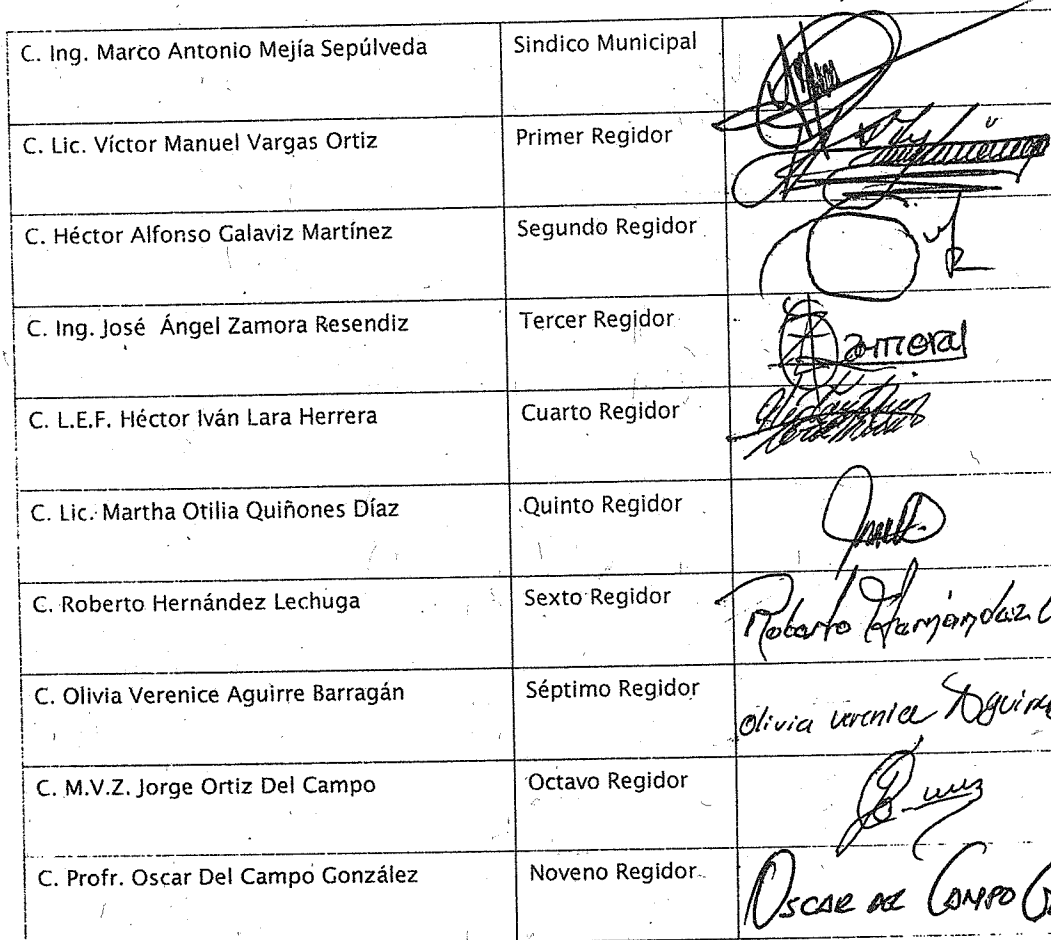 C. Ing. Marco Antonio Mejía Sepúlveda Sindico Municipal
C. Lic. Víctor Manuel Vargas Ortiz Primer Regidor
C. Héctor Alfonso Galaviz Martínez Segundo Regidor
C. Ing. José Ángel Zamora Resendiz Tercer Regidor
C. L.E.F. Héctor Iván Lara Herrera Cuarto Regidor
C. Lic. Martha Otilia Quiñones Díaz Quinto Regidor
C. Roberto Hernández Lechuga Sexto Regidor Roberto Hernández
C. Olivia Verenice Aguirre Barragán Séptimo Regidor Olivia Verenice Aguirre
C. M.V.Z. Jorge Ortiz Del Campo Octavo Regidor
C. Profr. Oscar Del Campo González Noveno Regidor OSCAR DEL CAMPO